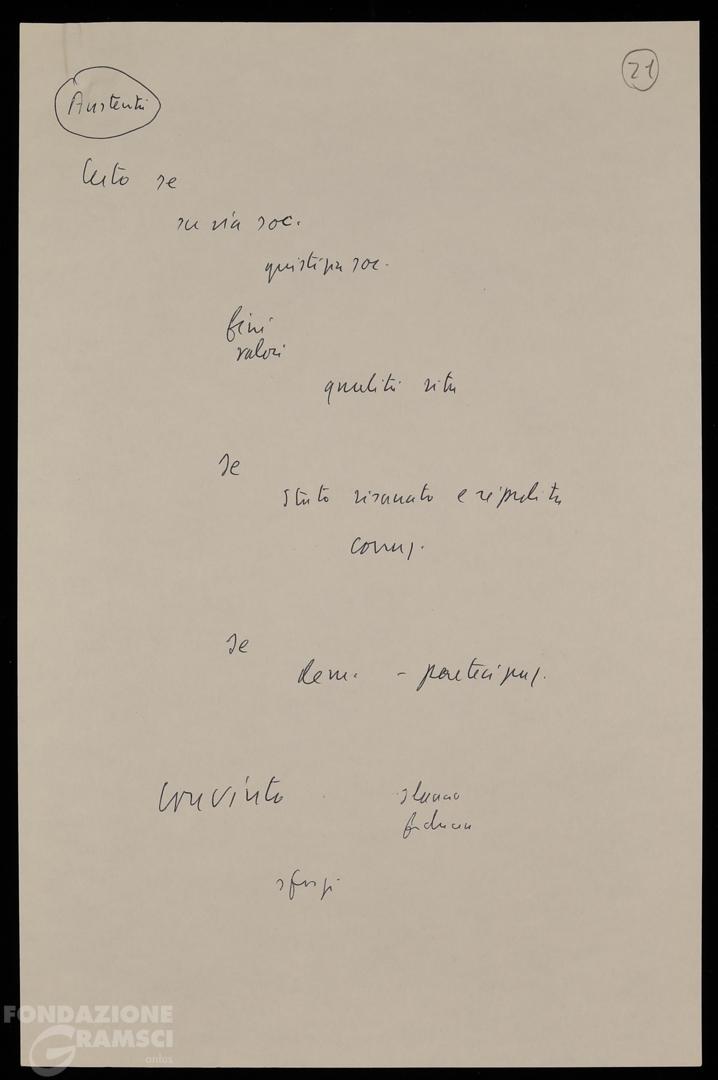 21
Austerità
Certo se
su via soc.
giustizia soc.
fini
valori
qualità vita
se
Stato risanato e ripulito
corruz.
se
dem. - partecipaz.
Convinto slancio
fiducia
sforzi
FONDAZIONE
GRAMSCI
onlus